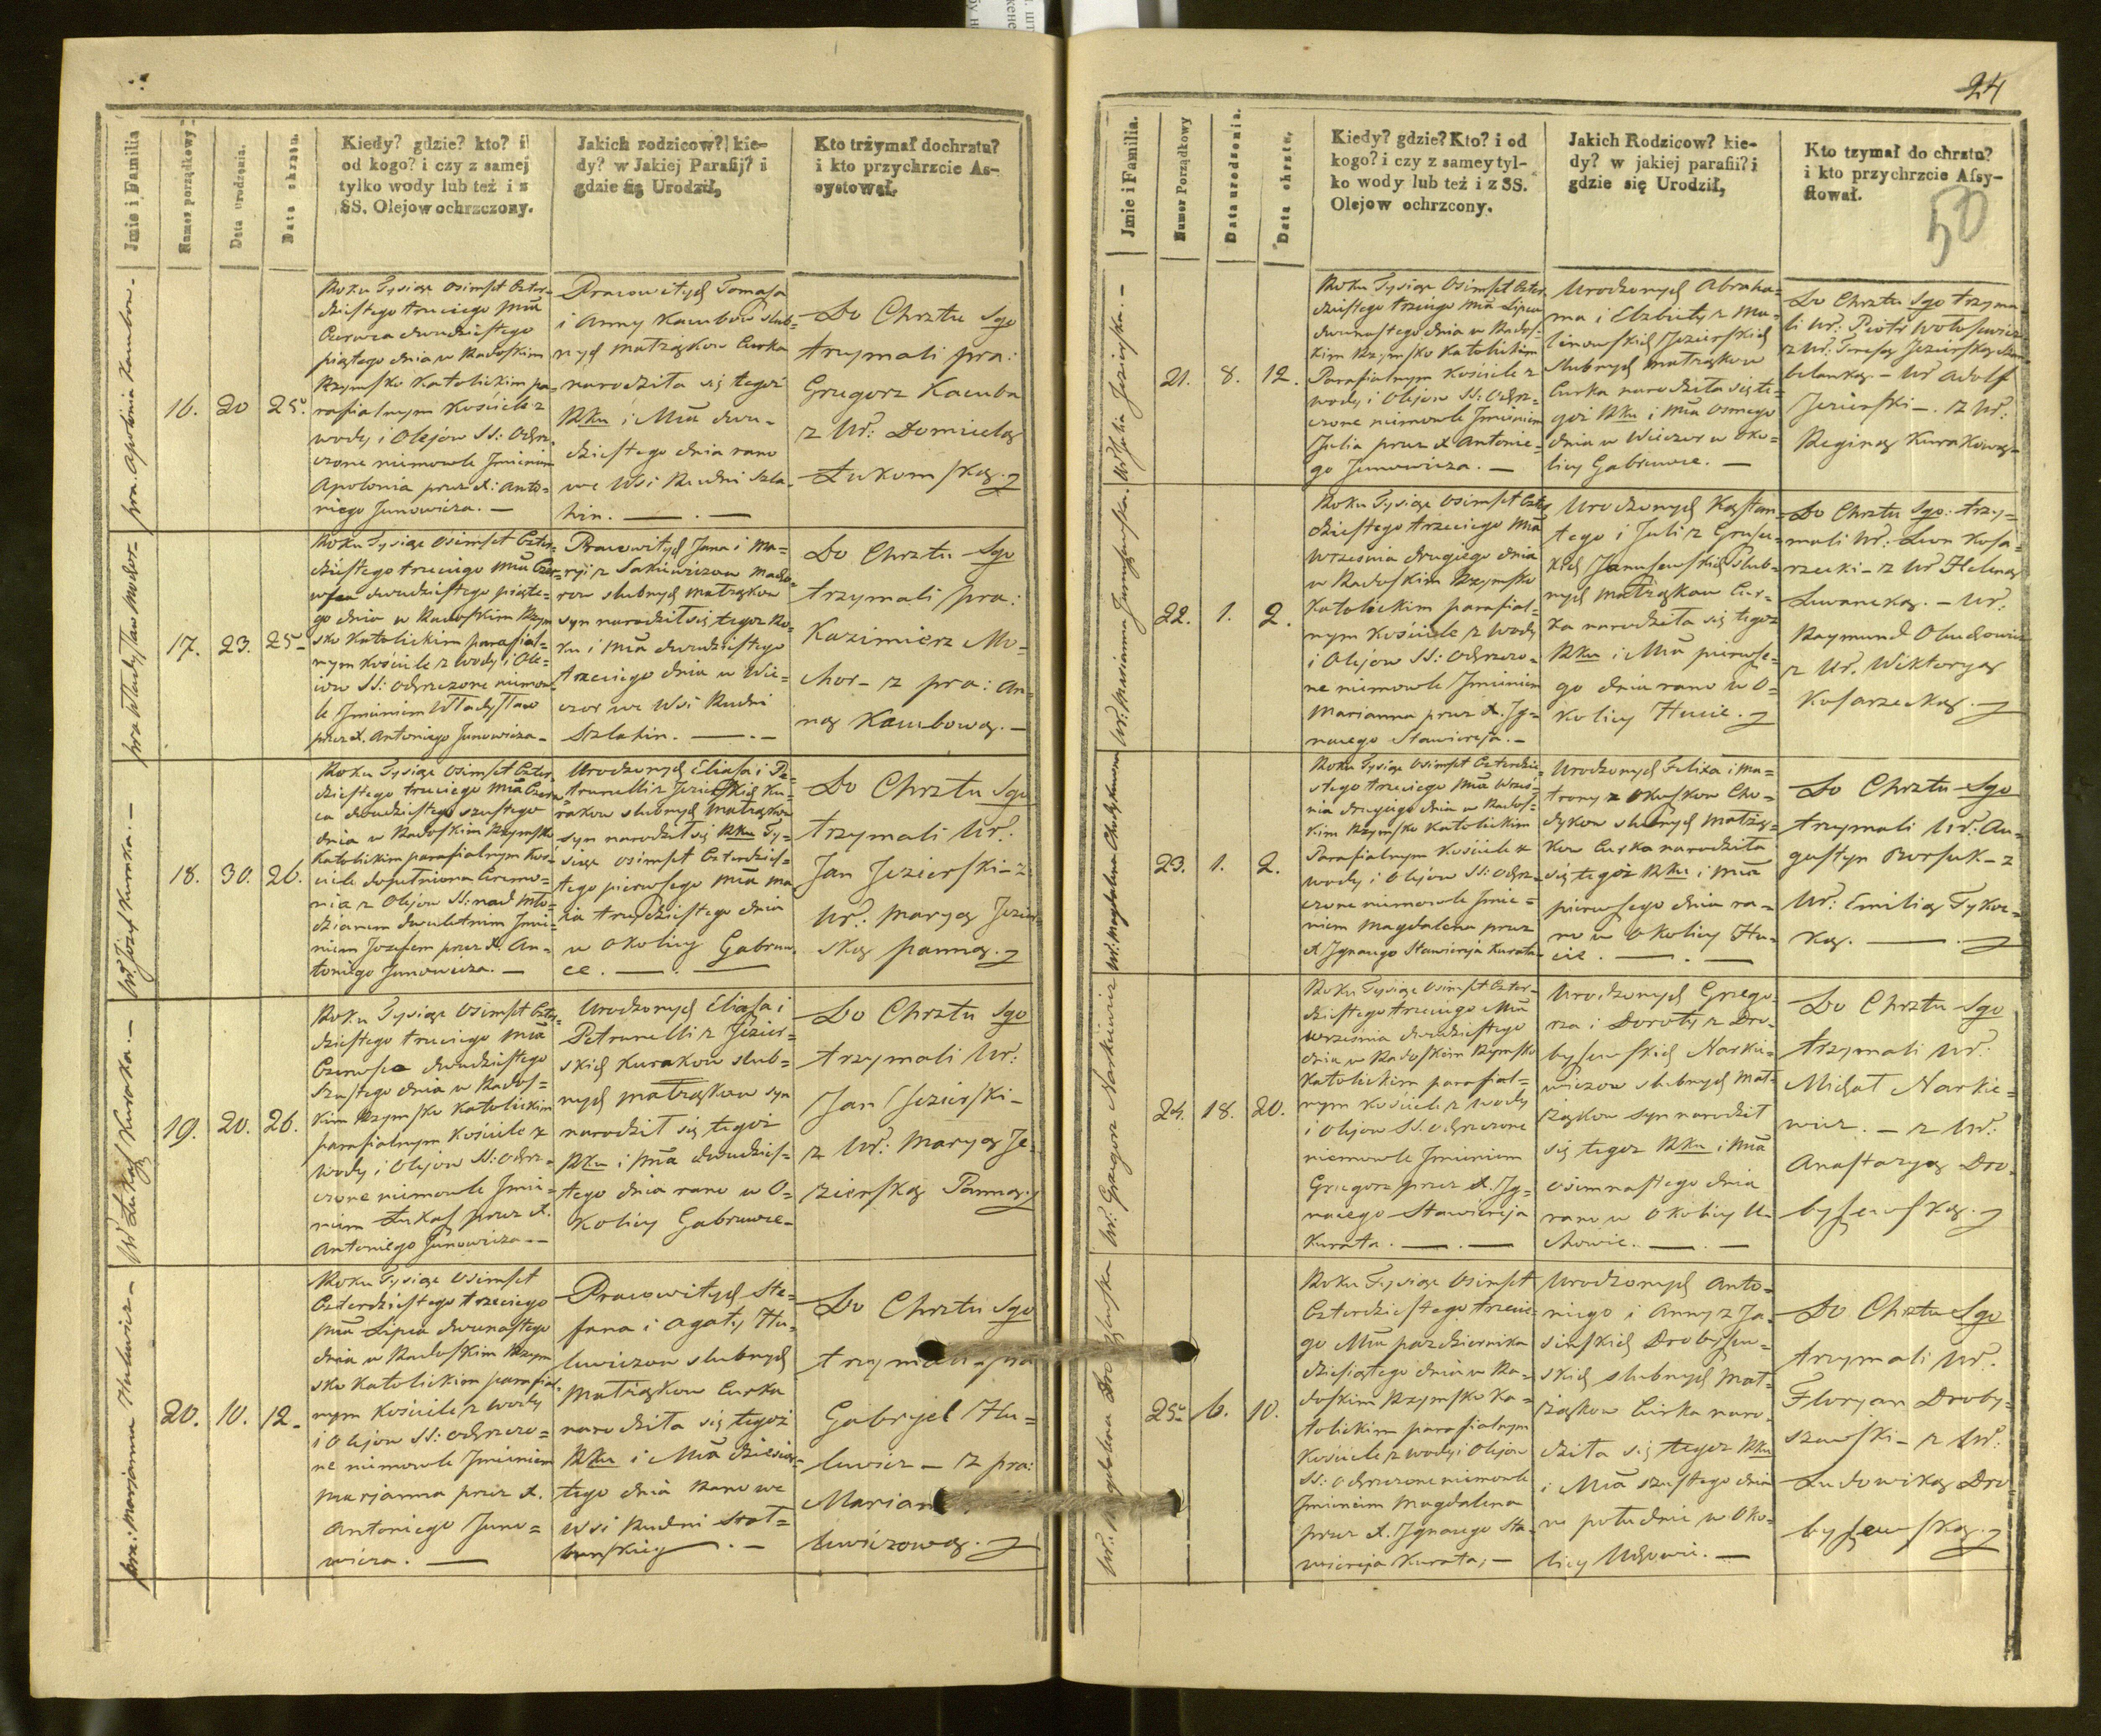 24
50
Jmie i Familia
Numer porządkowy
Data urodzenia.
Data chrztu.
Kiedy? gdzie? kto? i
od kogo? i czy z samej
tylko wody lub też i z
SS. Olejow ochrzczony.
Jakich rodzicow? kie-
dy? w Jakiej Parafij? i
gdzie się Urodził,
Kto trżymał dochrztu?
i kto przychrzcie As-
systował.
pra. Apolonia Kaembow. -
16.
20
25.
Roku Tysiąc Osimset Czter-
dziestego trzeciego Mca
Czerwca dwudziestego
piątego dnia w Radoskim
Rzymsko Katolickim pa-
rafialnym Kościele z
wody i Olejow SS: Ochrz-
czone niemowle Jmieniem
Apolonia przez X: Anto-
niego Junowicza. -
Pracowitych Tomasza
i Anny Kaembow slub-
nych Matżąkow Curka
narodziła się tegoż
Rku i Mca dwu-
dziestego dnia rano
we Wsi Rudni Szla-
hin. -
Do Chrztu Sgo
trzymali pra:
Gregorz Kaemba
z Ur: Domicelą
Łukomską.
pra Władysław Mochor-
17.
23.
25-
Roku Tysiąc Osimset Czter-
dziestego trzeciego Mca Czer-
wca dwudziestego piąte-
go dnia w Radoskim Rzym
sko Katolickim parafial-
nym Kościele z wody i Ole-
iow SS: Ochrzczone niemow-
le Jmieniem Władysław
przez X. Antoniego Junowicza-
Pracowitych Jana i Ma-
ryi z Sakiewiczow Macho-
row slubnych matżąkow
syn narodził się tegoż Ro-
ku i Mca dwudziestego
trzeciego dnia w Wie-
czor we Wsi Rudni
Szlahin. -
Do Chrztu Sgo
trzymali pra:
Kazimierz Mo-
chor- z pra: An-
ną Kaembową. -
Ur Jozef Kuraka. -
18.
30.
26.
Roku Tysiąc Osimset Czter-
dziestego trzeciego Mca Czerw
ca dwudziestego szustego
dnia w Radoskim Rzymsko
Katolickim parafialnym Koś-
ciele dopełniona Ceremo-
nia z Olejow SS: nad Mło-
dzianem dwuletnim Jmie-
niem Jozefem przez X. An-
toniego Junowicza. -
Urodzonych Eliasza i Pe-
trunelli z Jezierskich Ku-
rakow slubnych Matżąkow
syn narodził się Rku Ty-
siąc osimset Czterdzies-
tego pierwszego Mca Ma
ia trzydziestego dnia
w Okolicy Gabruw-
ce. -
Do Chrztu Sgo
trzymali Ur:
Jan Jezierski - z
Ur: Maryą Jezier-
ską panną.
Ur Łukasz Kuraka. -
19.
20.
26.
Roku Tysiąc Osimset Czter-
dziestego trzeciego Mca
Czerwca dwudziestego
Szustego dnia w Rados-
kim Rzymsko Katolickim
parafialnym Kościele z
wody i Olejow SS: Ochrz-
czone niemowle Jmie-
niem Łukasz przez X.
Antoniego Junowicza. -
Urodzonych Eliasza i
Petrunelli z Jezier-
skich Kurakow slub-
nych matżąkow syn
narodził się tegoż
Rku i Mca dwudzies-
tego dnia rano w O-
kolicy Gabruwce-
Do Chrztu Sgo
trzymali Ur:
Jan Jezierski -
z Ur: Maryą Je-
zierską Panną.
pra: Marjanna Hulewicz -
20.
10.
12-
Roku Tysiąc Osimset
Czterdziestego trzeciego
Mca Lipca dwunastego
dnia w Radoskim Rzym
sko Katolickim parafial-
nym Kościele z wody
i Olejow SS: Ochrzczo-
ne niemowle Jmieniem
Marjanna przez X.
Antoniego Juno-
wicza. -
Pracowitych Ste-
fana i Agaty Hu-
lewiczow slubnych
Matżąkow Curka
narodziła się tegoż
Rku i Mca dziesią-
tego dnia rano we
Wsi Rudni
Do Chrztu Sgo
trzymali pra
Gabryel Hu-
lewicz - z pra:
Marian
lewiczową.
Jmie i Familia.
Numer Porządkowy
Data urodzenia.
Data chrztu.
Kiedy? gdzie? Kto? i od
kogo? i czy z samey tyl-
ko wody lub też i z SS.
Olejow ochrzcony.
Jakich Rodzicow? kie-
dy? w jakiej parafii? i
gdzie się Urodził,
Kto tzymał do chrztu?
i kto przychrzcie Assy-
stował.
Ur Julia Jezierska. -
21.
8.
12.
Roku Tysiąc Osimset Czter-
dziestego trzeciego Mca Lipca
dwunastego dnia w Rados-
kim Rzymsko Katolickim
Parafialnym Kościele z
wody i Olejow SS: Ochrz-
czone niemowle Jmieniem
Julia przez X Antonie-
go Junowicza. -
Urodzonych Abraha-
ma i Elzbiety z Ma-
linowskich Jezierskich
slubnych matżąkow
Curka narodziła się te-
goż Rku i Mca Osmego
dnia w Wieczor w Oko-
licy Gabruwce. -
Do Chrztu Sgo trzyma
li Ur: Piotr Wołosewicz
z Ur: Teresą Jezierską
- Ur Adolf
Jezierski -. z Ur:
Reginą Kurakową-
Ur: Marianna Januszewska. -
22.
1.
2.
Roku Tysiąc Osimset Czter
dziestego trzeciego Mca
Września drugiego dnia
w Radoskim Rzymsko
Katolickim parafial-
nym Kościele z wody
i Olejow SS: Ochrzczo-
ne niemowle Jmieniem
Marianna przez X. Jg-
nacego Stawireja. -
Urodzonych Kąstan-
tego i Juli z
Januszewskich Slub-
nych Matżąkow Cur-
ka narodziła się tegoż
Rku i Mca pierwsze-
go dnia rano w O-
kolicy Hucie.
Do Chrztu Sgo: trzy-
mali Ur: Leon Kosa-
rzecki - z Ur Heleną
- Ur.
Raymund
z Ur. Wiktoryą
Kosarzecką.
Ur: Magdalena
23.
1.
2.
Roku Tysiąc Osimset Czterdzie-
stego trzeciego Mca Wrześ-
nia drugiego dnia w Rados-
kim Rzymsko Katolickim
Parafialnym Kościele z
wody i Olejow SS: Ochrz-
czone niemowle Jmie-
niem Magdalena przez
X Jgnacego Stawireja Kurata-
Urodzonych Felixa i Ma-
trony z Okuskow Cho-
dykow slubnych Matżą-
kow Curka narodziła
się tegoż Rku i Mca
pierwszego dnia ra-
no w Okolicy Hu-
cie. -
Do Chrztu Sgo
trzymali Ur: Au-
gustyn Borsuk - z
Ur: Emilią Tykoc-
ką. -
Ur: Grzegorz Narkiewicz
24.
18.
20.
Roku Tysiąc Osimset Czter-
dziestego trzeciego Mca
Września dwudziestego
dnia w Radoskim Rzymsko
Katolickim parafial-
nym Kościele z wody
i Olejow SS. Ochrzczone
niemowle Jmieniem
Grzegorz przez X. Jg-
nacego Stawireja
Kurata. -
Urodzonych Grzego-
rza i Doroty z Dro-
byszewskich Narkie-
wiczow slubnych Mat-
żąkow syn narodził
się tegoż Rku i Mca
Osimnastego dnia
rano w Okolicy U-
chowie. -
Do Chrztu Sgo
trzymali Ur:
Michał Narkie-
wicz. - z Ur:
Anastazyą Dro-
byszewską.
25-
6.
10.
Roku Tysiąc Osimset
Czterdziestego trzecie-
go Mca pazdziernika
dziesiątego dnia w Ra-
doskim Rzymsko Ka-
tolickim parafialnym
Kościele z wody i Olejow
SS: Ochrzczone niemowle
Jmieniem Magdalena
przez X. Jgnacego Sta-
wireja Kurata, -
Urodzonych Anto-
niego i Anny z Ja-
sinskich Drobyszew-
skich slubnych Mat-
żąkow Curka naro-
dziła się tegoż Rku
i Mca szustego dnia
w południe w Oko-
licy Uchowie. -
Do Chrztu Sgo
trzymali Ur.
Floryan Droby-
szewski - z Ur:
Ludowiką Dro-
byszewską.